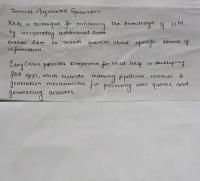 Retrieval Augmented Generation
RAG is technique for enhancing the knowledge of LLM
by incorporating additional data
enables LLM to answer question about specific source of
information.
LangChain provides components that help in developing
Q&A apps, which include indexing pipelines, retrieval &
generation mechanisms for processing user queries and
generating answers.